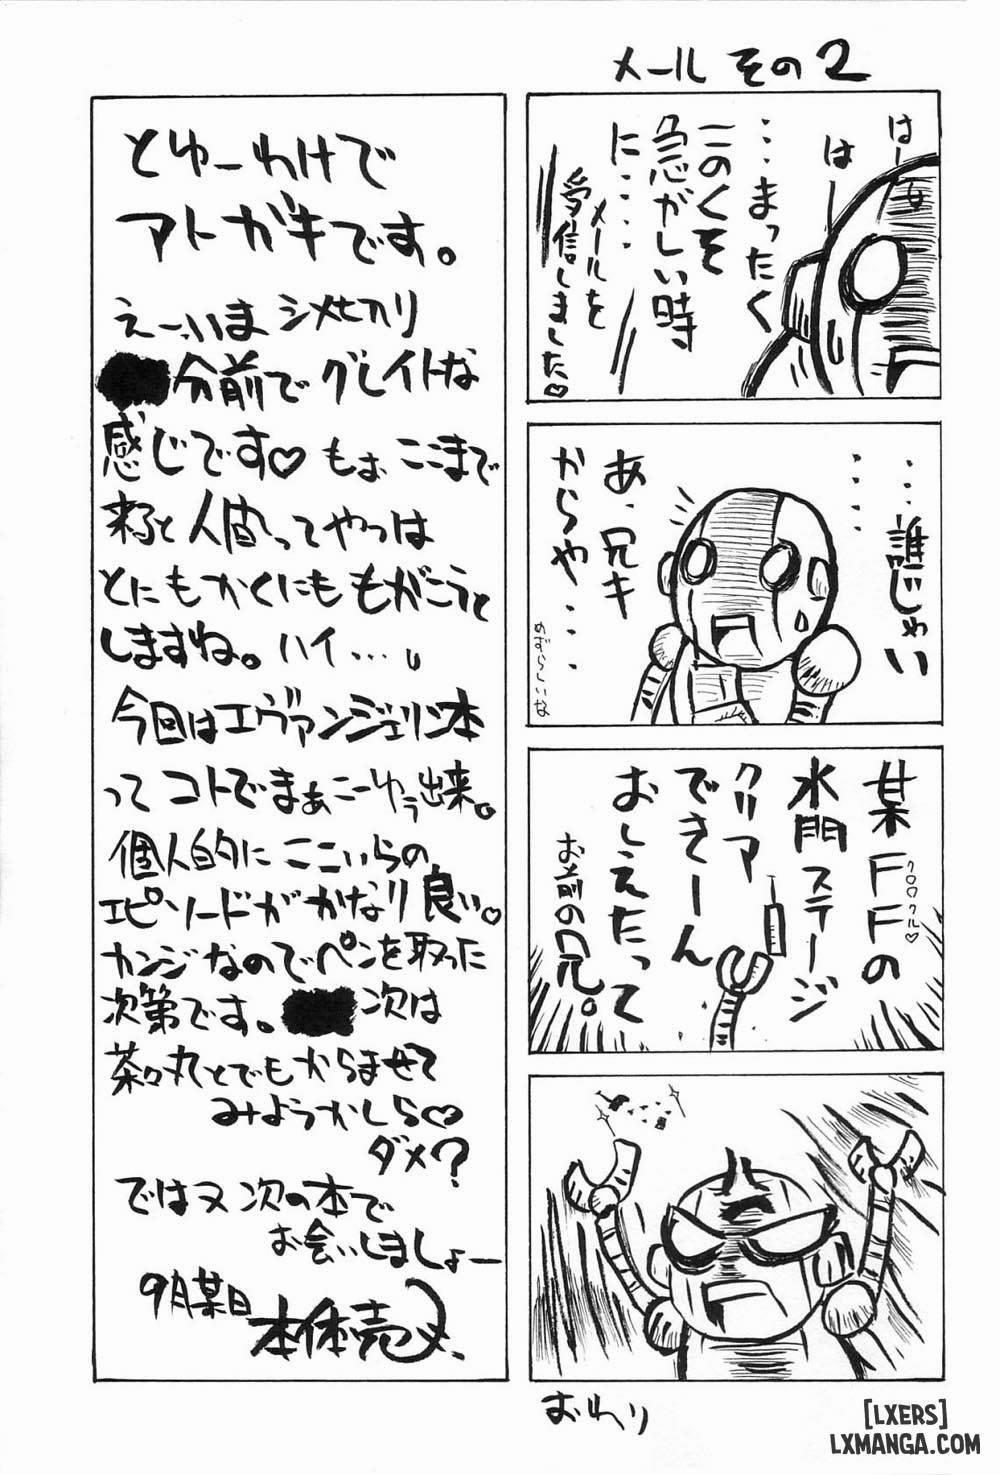 メール その2
はー
はー
…まったく
このくそ
急がしい時
に……
メールを
受信しました♡
……誰じゃい
……
あ、兄キ
からや……
めずらしいな
某FFの
クロクル♡
水門ステージ
クリア
できーん
おしえたって
お前の兄。
おわり
とゆーわけで
アトガキです。
えーいま シメキリ
分前で グレイトな
感じです♡ もぉ ここまで
来ると 人間ってやつは
とにもかくにも もがこうと
しますね。ハイ…。
今回はエヴァンジェリン本
って コトでまぁこーゆう出来。
個人的に ここいらの
エピソードが かなり良い。
カンジなのでペンを取った
次第です。 次は
茶々丸とでもからませて
みようかしら♡
ダメ?
ではヌ 次の本で
お会いしましょー
9月某日
本体売
[LXERS]
LXMANGA.COM